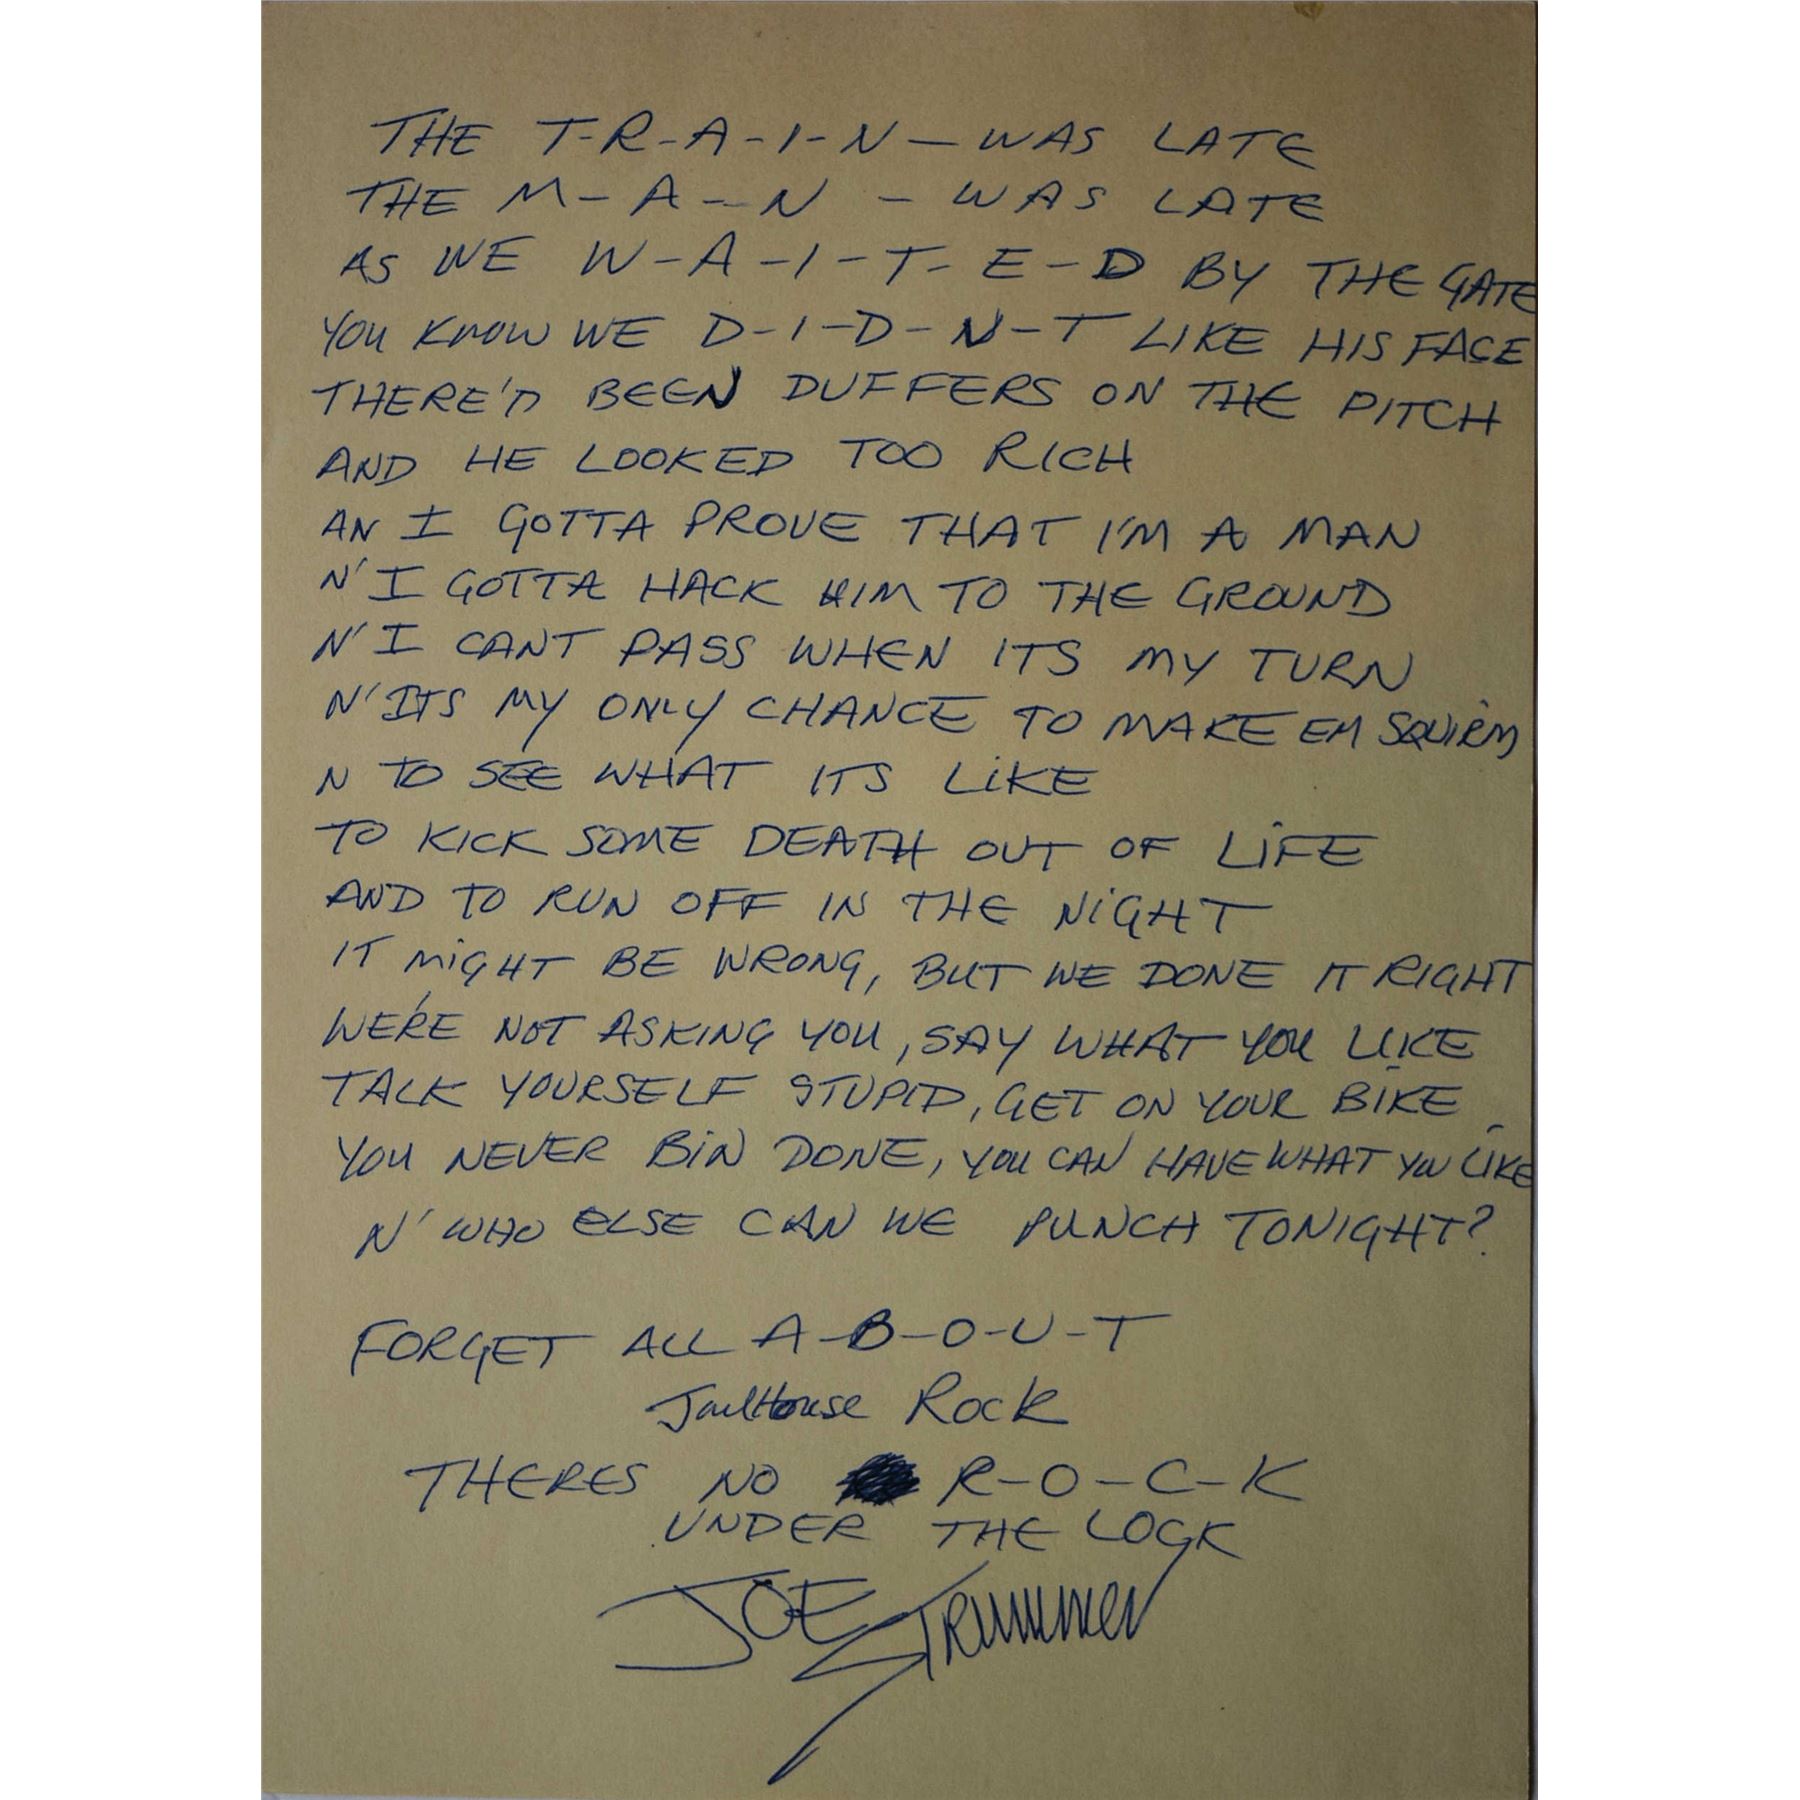 THE T-R-A-I-N - WAS LATE
THE M-A-N - WAS LATE
AS WE W-A-I-T-E-D BY THE GATE
YOU KNOW WE D-I-D-N-T LIKE HIS FACE
THERE'D BEEN DUFFERS ON THE PITCH
AND HE LOOKED TOO RICH
AN I GOTTA PROVE THAT I'M A MAN
N' I GOTTA HACK HIM TO THE GROUND
N' I CANT PASS WHEN ITS MY TURN
N' ITS MY ONLY CHANCE TO MAKE EM SQUIRM
N TO SEE WHAT ITS LIKE
TO KICK SOME DEATH OUT OF LIFE
AND TO RUN OFF IN THE NIGHT
IT MIGHT BE WRONG, BUT WE DONE IT RIGHT
WE'RE NOT ASKING YOU, SAY WHAT YOU LIKE
TALK YOURSELF STUPID, GET ON YOUR BIKE
YOU NEVER BIN DONE, YOU CAN HAVE WHAT YOU LIKE
N' WHO ELSE CAN WE PUNCH TONIGHT?
FORGET ALL A-B-O-U-T
JailHouse Rock
THERES NO R-O-C-K
UNDER THE LOCK
JOE STRUMMER